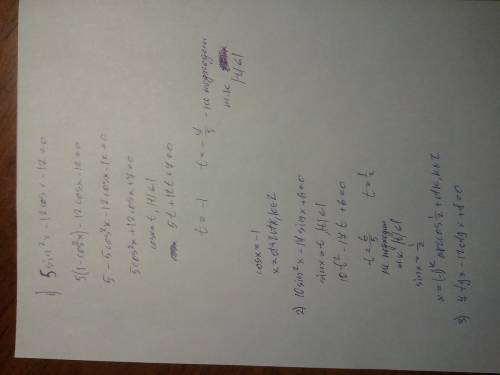 1) 5sin²x - 12cosx - 12 = 0
5(1-cos²x) - 12cosx - 12 = 0
5 - 5cos²x - 12cosx - 12 = 0
5cos²x + 12cosx + 7 = 0
cosx = t, |t|≤1
5t + 12t + 7 = 0
t = -1 t = -7/5 - не подходит
т.к. |t|≤1
cosx = -1
x = π + 2πk, k∈Z
2) 10sin²x - 17sinx + 6 = 0
sinx = t, |t|≤1
10t² - 17t + 6 = 0
t = 6/5 t = 1/2
не подходит
т.к. |t|≤1
sinx = 1/2
x = (-1)ᵏ · arccos 1/2 + πk, k∈Z
3)